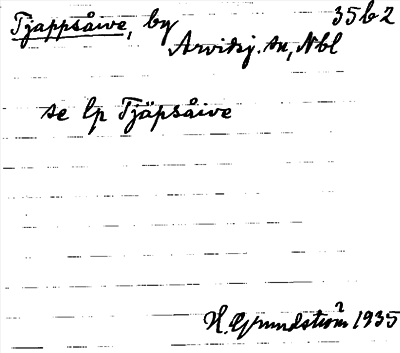 Tjappsåive, by 35b2
Arvidsj. sn, Nbl
se lp Tjäpsåive
H. Grundström 1935